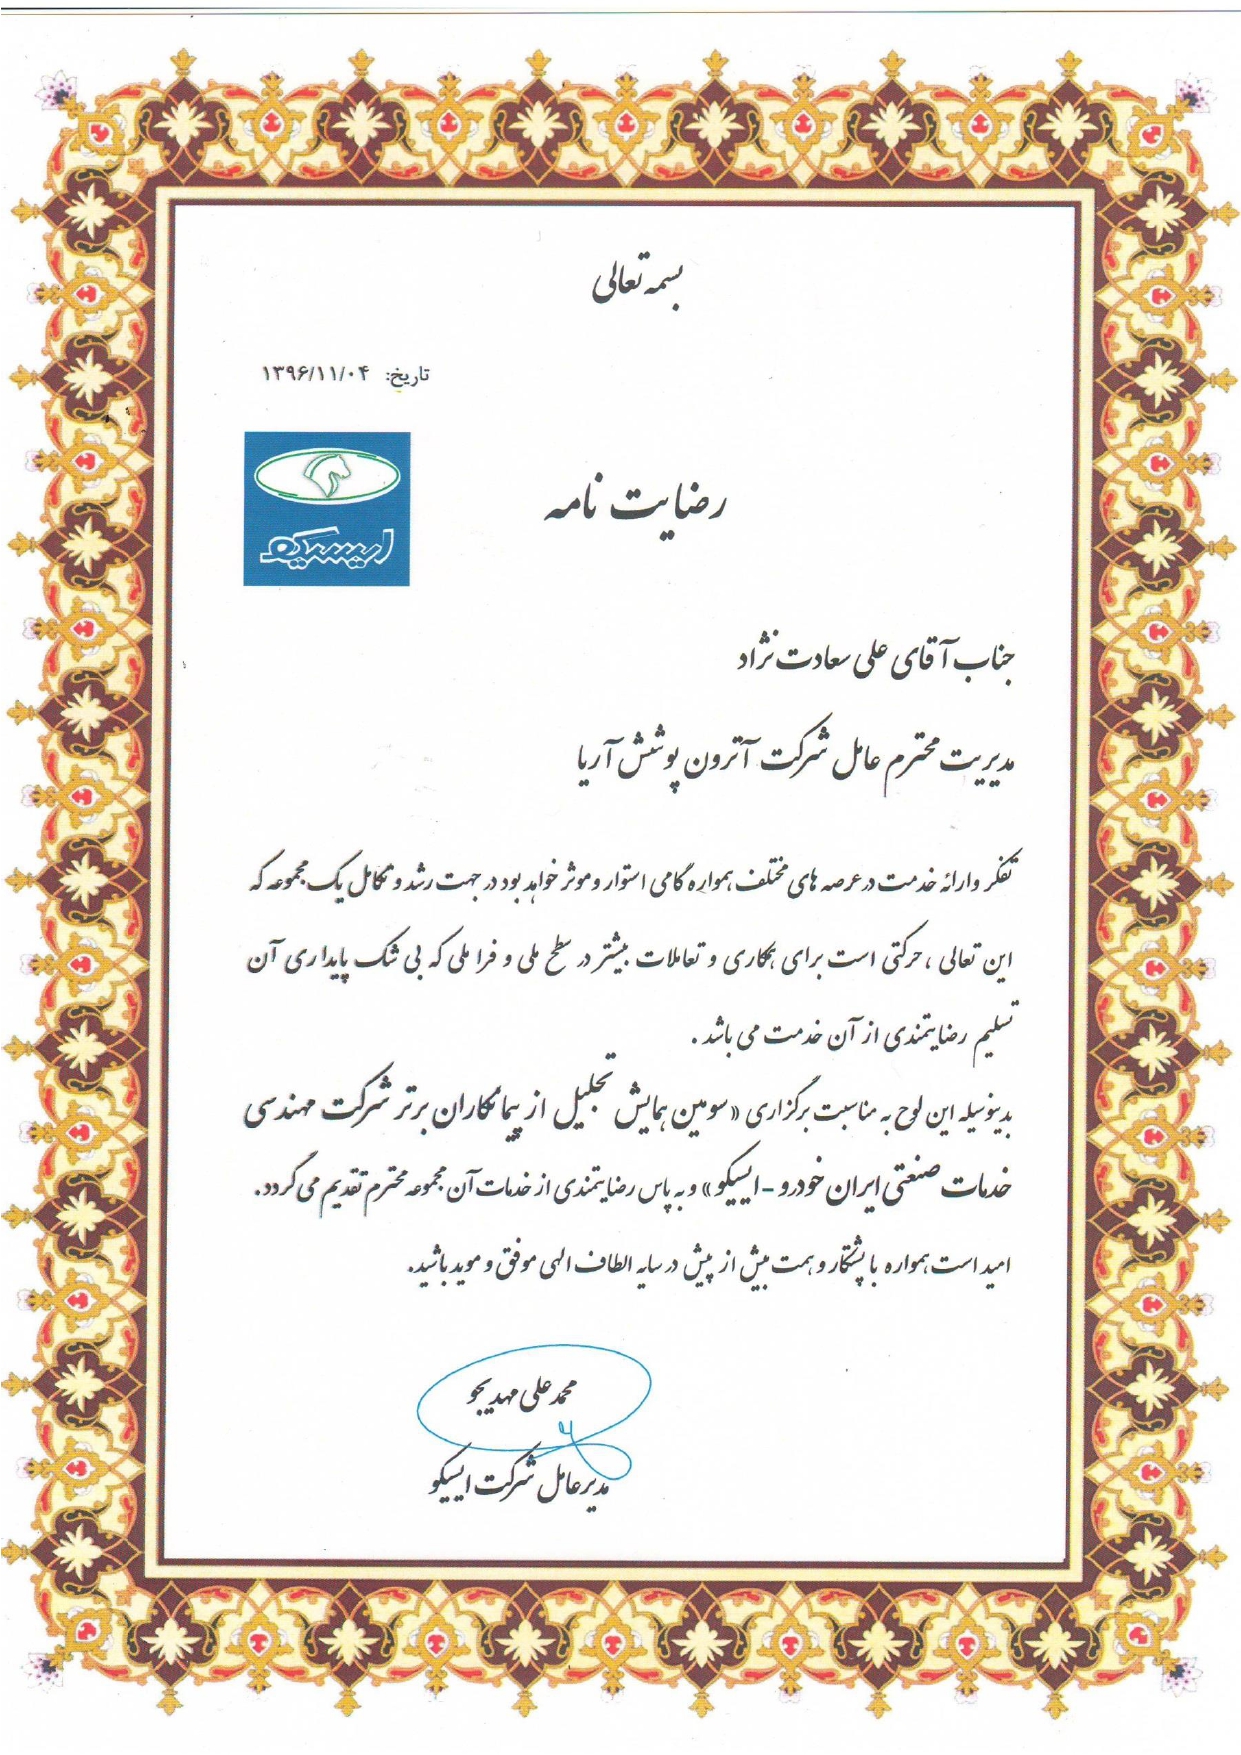 بسمه تعالی
تاریخ: ۱۳۹۶/۱۱/۰۴
ایسیکو
رضایت نامه
جناب آقای علی سعادت نژاد
مدیریت محترم عامل شرکت آترون پوشش آریا
تفکر وارائه خدمت درعرصه های مختلف همواره گامی استوار وموثر خواهد بود در جهت رشد و تکامل یک مجموعه که
این تعالی ، حرکتی است برای همکاری و تعاملات بیشتر در سطح ملی و فرا ملی که بی شک پایداری آن
تسلیم رضایتمندی از آن خدمت می باشد .
بدینوسیله این لوح به مناسبت برگزاری «سومین همایش تجلیل از پیمانکاران برتر شرکت مهندسی
خدمات صنعتی ایران خودرو - ایسیکو» و به پاس رضایتمندی از خدمات آن مجموعه محترم تقدیم می گردد.
امید است همواره با پشتکار و همت بیش از پیش در سایه الطاف الهی موفق و موید باشید.
محمد علی مهدیجو
مدیرعامل شرکت ایسیکو